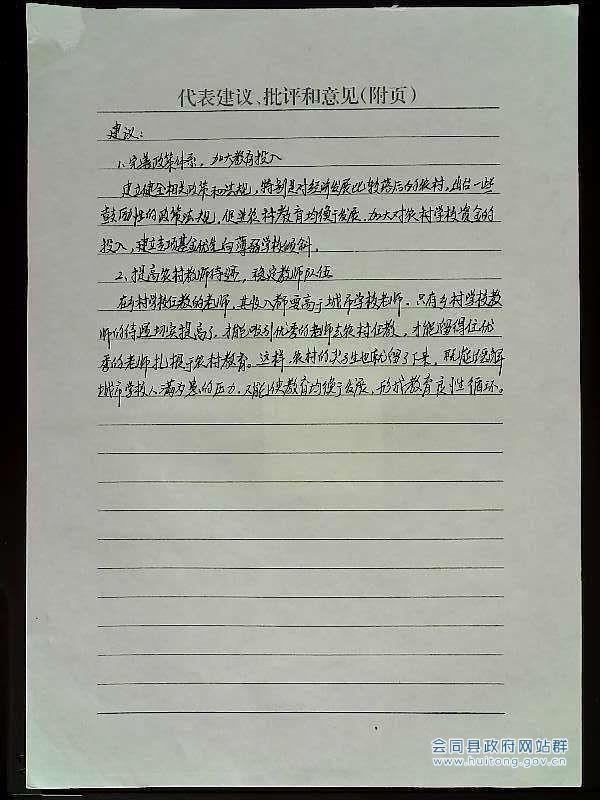 代表建议、批评和意见(附页)
建议:
1、完善政策体系，加大教育投入
建立健全相关政策和法规，特别是对经济发展比较落后的农村，出台一些
鼓励性的政策法规，促进农村教育均衡发展。加大对农村学校资金的
投入，建立专项基金优先向薄弱学校倾斜。
2、提高农村教师待遇，稳定教师队伍
在乡村学校任教的老师，其收入都要高于城市学校老师。只有乡村学校教
师的待遇切实提高了，才能吸引优秀的老师去农村任教，才能留得住优
秀的老师扎根于农村教育。这样，农村的学生也就留了下来，既能缓解
城市学校人满为患的压力，又能使教育均衡发展，形成教育良性循环。
会同县政府网站群
www.huitong.gov.cn